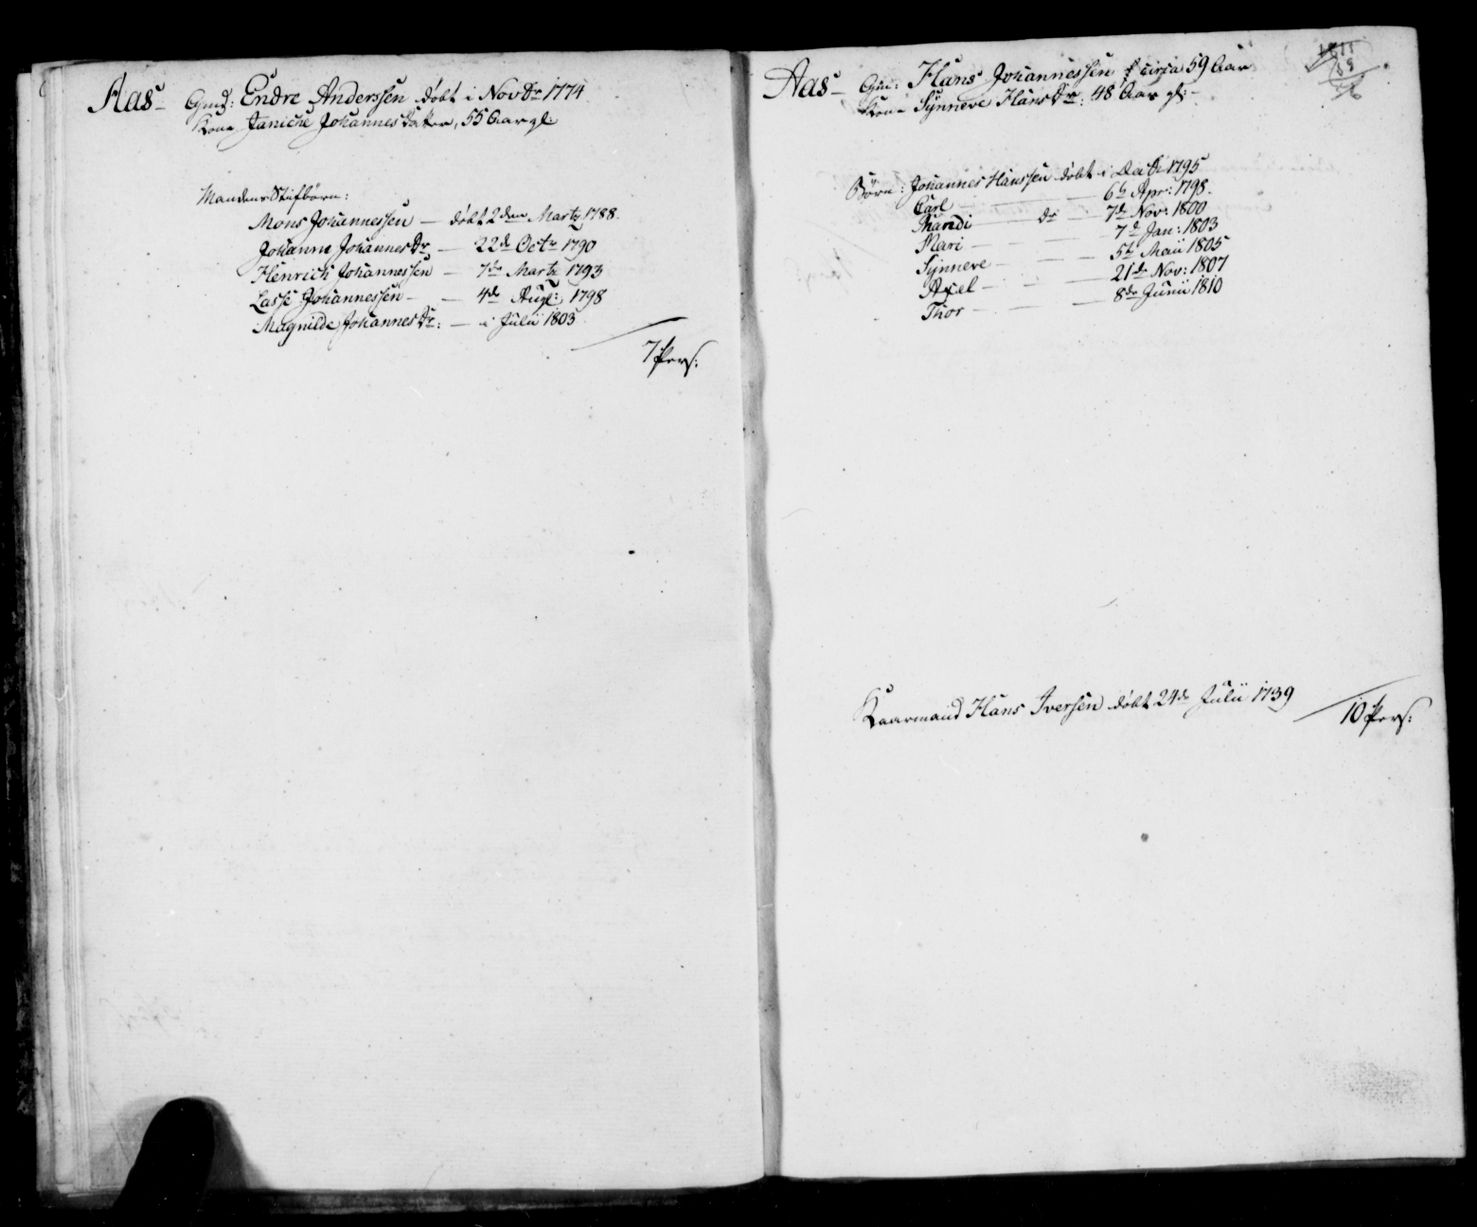 Aas - Gmd: Endre Anderssen døbt i Novbr 1774
Kone Janiche Johannesdatter, 55 Aar gl:
Mandens Stifbørn:
Mons Johannessen — døbt 2den Martz 1788.
Johanne Johannesdr — 22de Octr 1790
Henrich Johannessen — 7de Martz 1793
Lasse Johannessen — — 4de Augt: 1798
Magnilde Johannesdr: — i Julii 1803
7 Pers:
1811
59
Aas - Gm: Hans Johannessen circa 59 Aar
Kone Synneve Hansdr: 48 Aar gl: -
Børn: Johannes Hanssen døbt i Decbr 1795
Carl — — 6te Apr: 1798.
Randi — do — 7de Nov: 1800
Mari — — — 7de Jan: 1803
Synneve — — — 5te Maii 1805
Axel — — — 21de Nov: 1807
Thor — — — 8de Junii 1810
Kaarmand Hans Iversen døbt 24de Julii 1739
10 Pers: